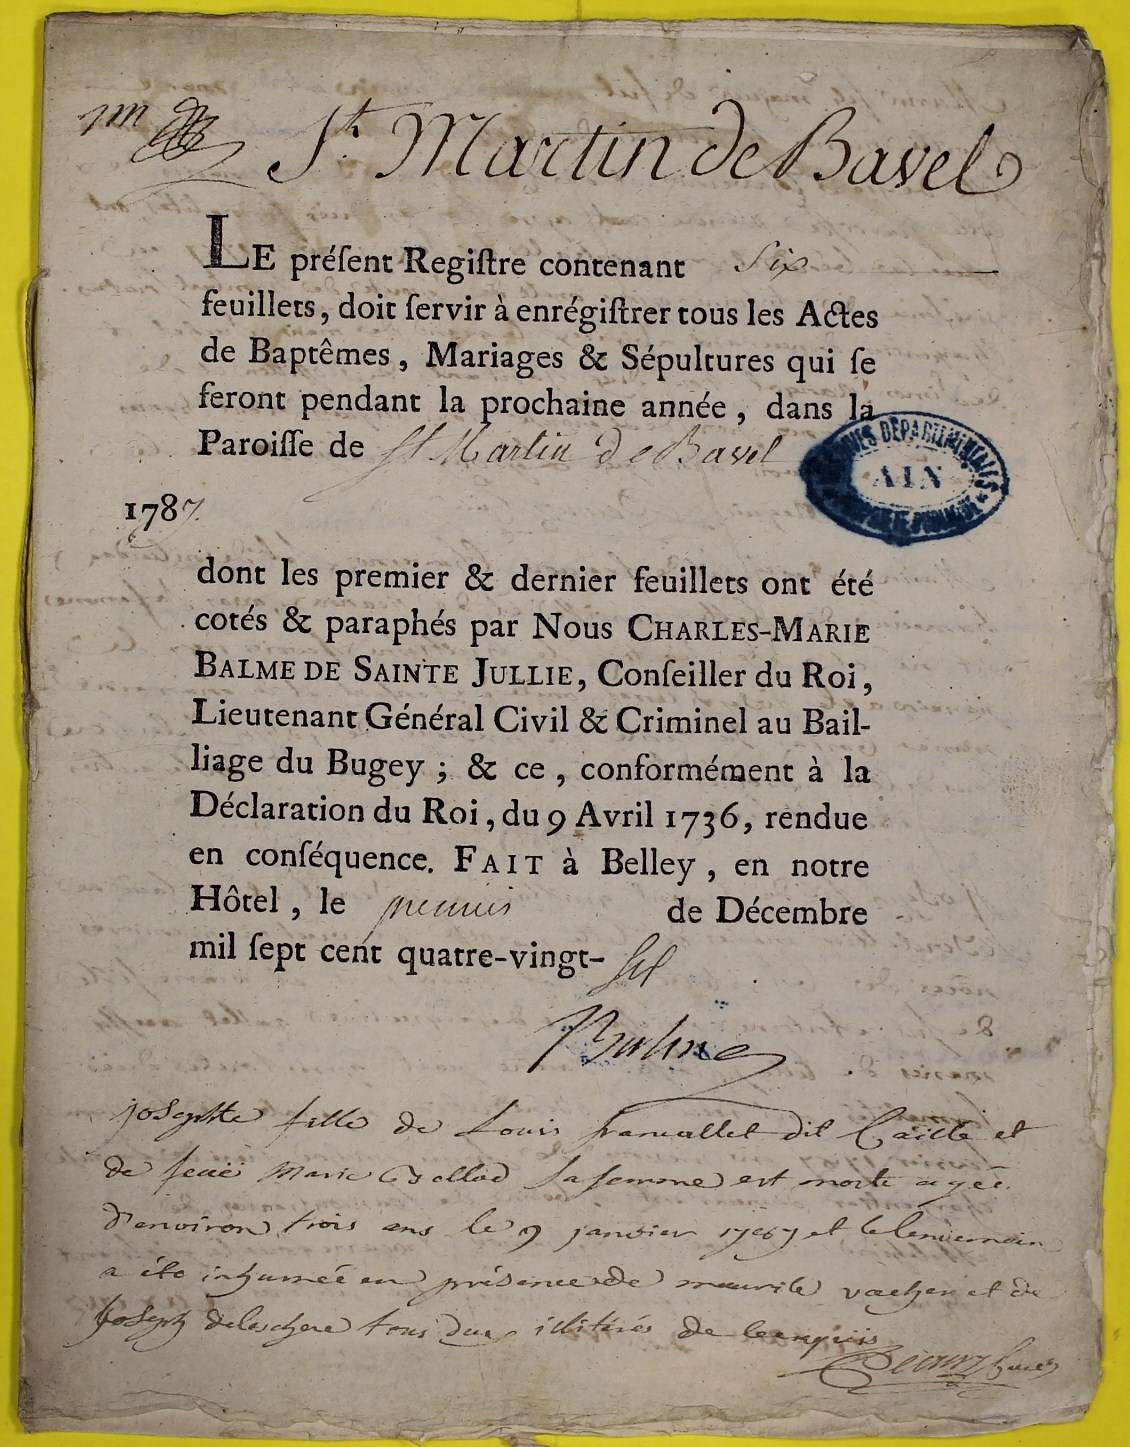 1re
St. Martin de Bavel
LE préſent Regiſtre contenant Six
feuillets, doit ſervir à enrégiſtrer tous les Actes
de Baptêmes, Mariages & Sépultures qui ſe
feront pendant la prochaine année, dans la
Paroiſſe de St Martin de Bavel
ARCHIVES DÉPARTEMENTALES
AIN
1787.
dont les premier & dernier feuillets ont été
cotés & paraphés par Nous CHARLES-MARIE
BALME DE SAINTE JULLIE, Conſeiller du Roi,
Lieutenant Général Civil & Criminel au Bail-
liage du Bugey ; & ce, conformément à la
Déclaration du Roi, du 9 Avril 1736, rendue
en conſéquence. FAIT à Belley, en notre
Hôtel, le premier de Décembre
mil ſept cent quatre-vingt- six
Balme
josephte fille de Louis dit Caille et
de feüe Marie sa femme est morte agée
d'environ trois ans le 9 janvier 1787 et le lendemain
a été inhumée en présence de maurile vacher et de
Joseph delachere tous deux illitérés de ce enquis
curé